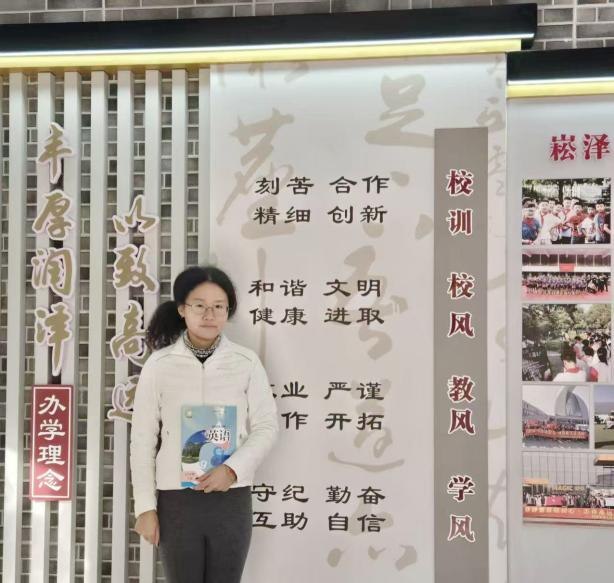 丰厚润泽
以致高远
办学理念
刻苦 合作
精细 创新
校训
和谐 文明
健康 进取
校风
业 严谨
作 开拓
教风
守纪 勤奋
互助 自信
学风
崧泽
英语